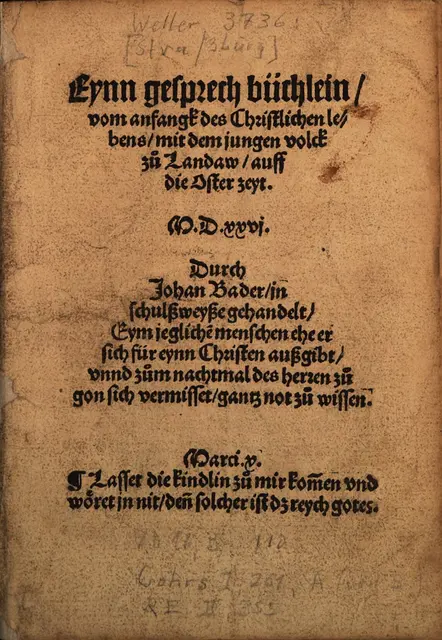 Weller 3736.
[Straßburg]
Eynn gesprech büchlein/
vom anfangk des Christlichen le/
bens/mit dem jungen volck
zů Landaw/auff
die Oster zeyt.
M.D.xxvj.
Durch
Johan Bader/jn
schulßweyße gehandelt/
Eym jeglichē menschen ehe er
sich für eynn Christen außgibt/
vnnd zům nachtmal des herren zů
gon sich vermisset/gantz not zů wissen.
Marci.x.
¶ Lasset die kindlin zů mir kom̄en vnd
wöret jn nit/deñ solcher ist dz reych gotes.
Cohrs I 261